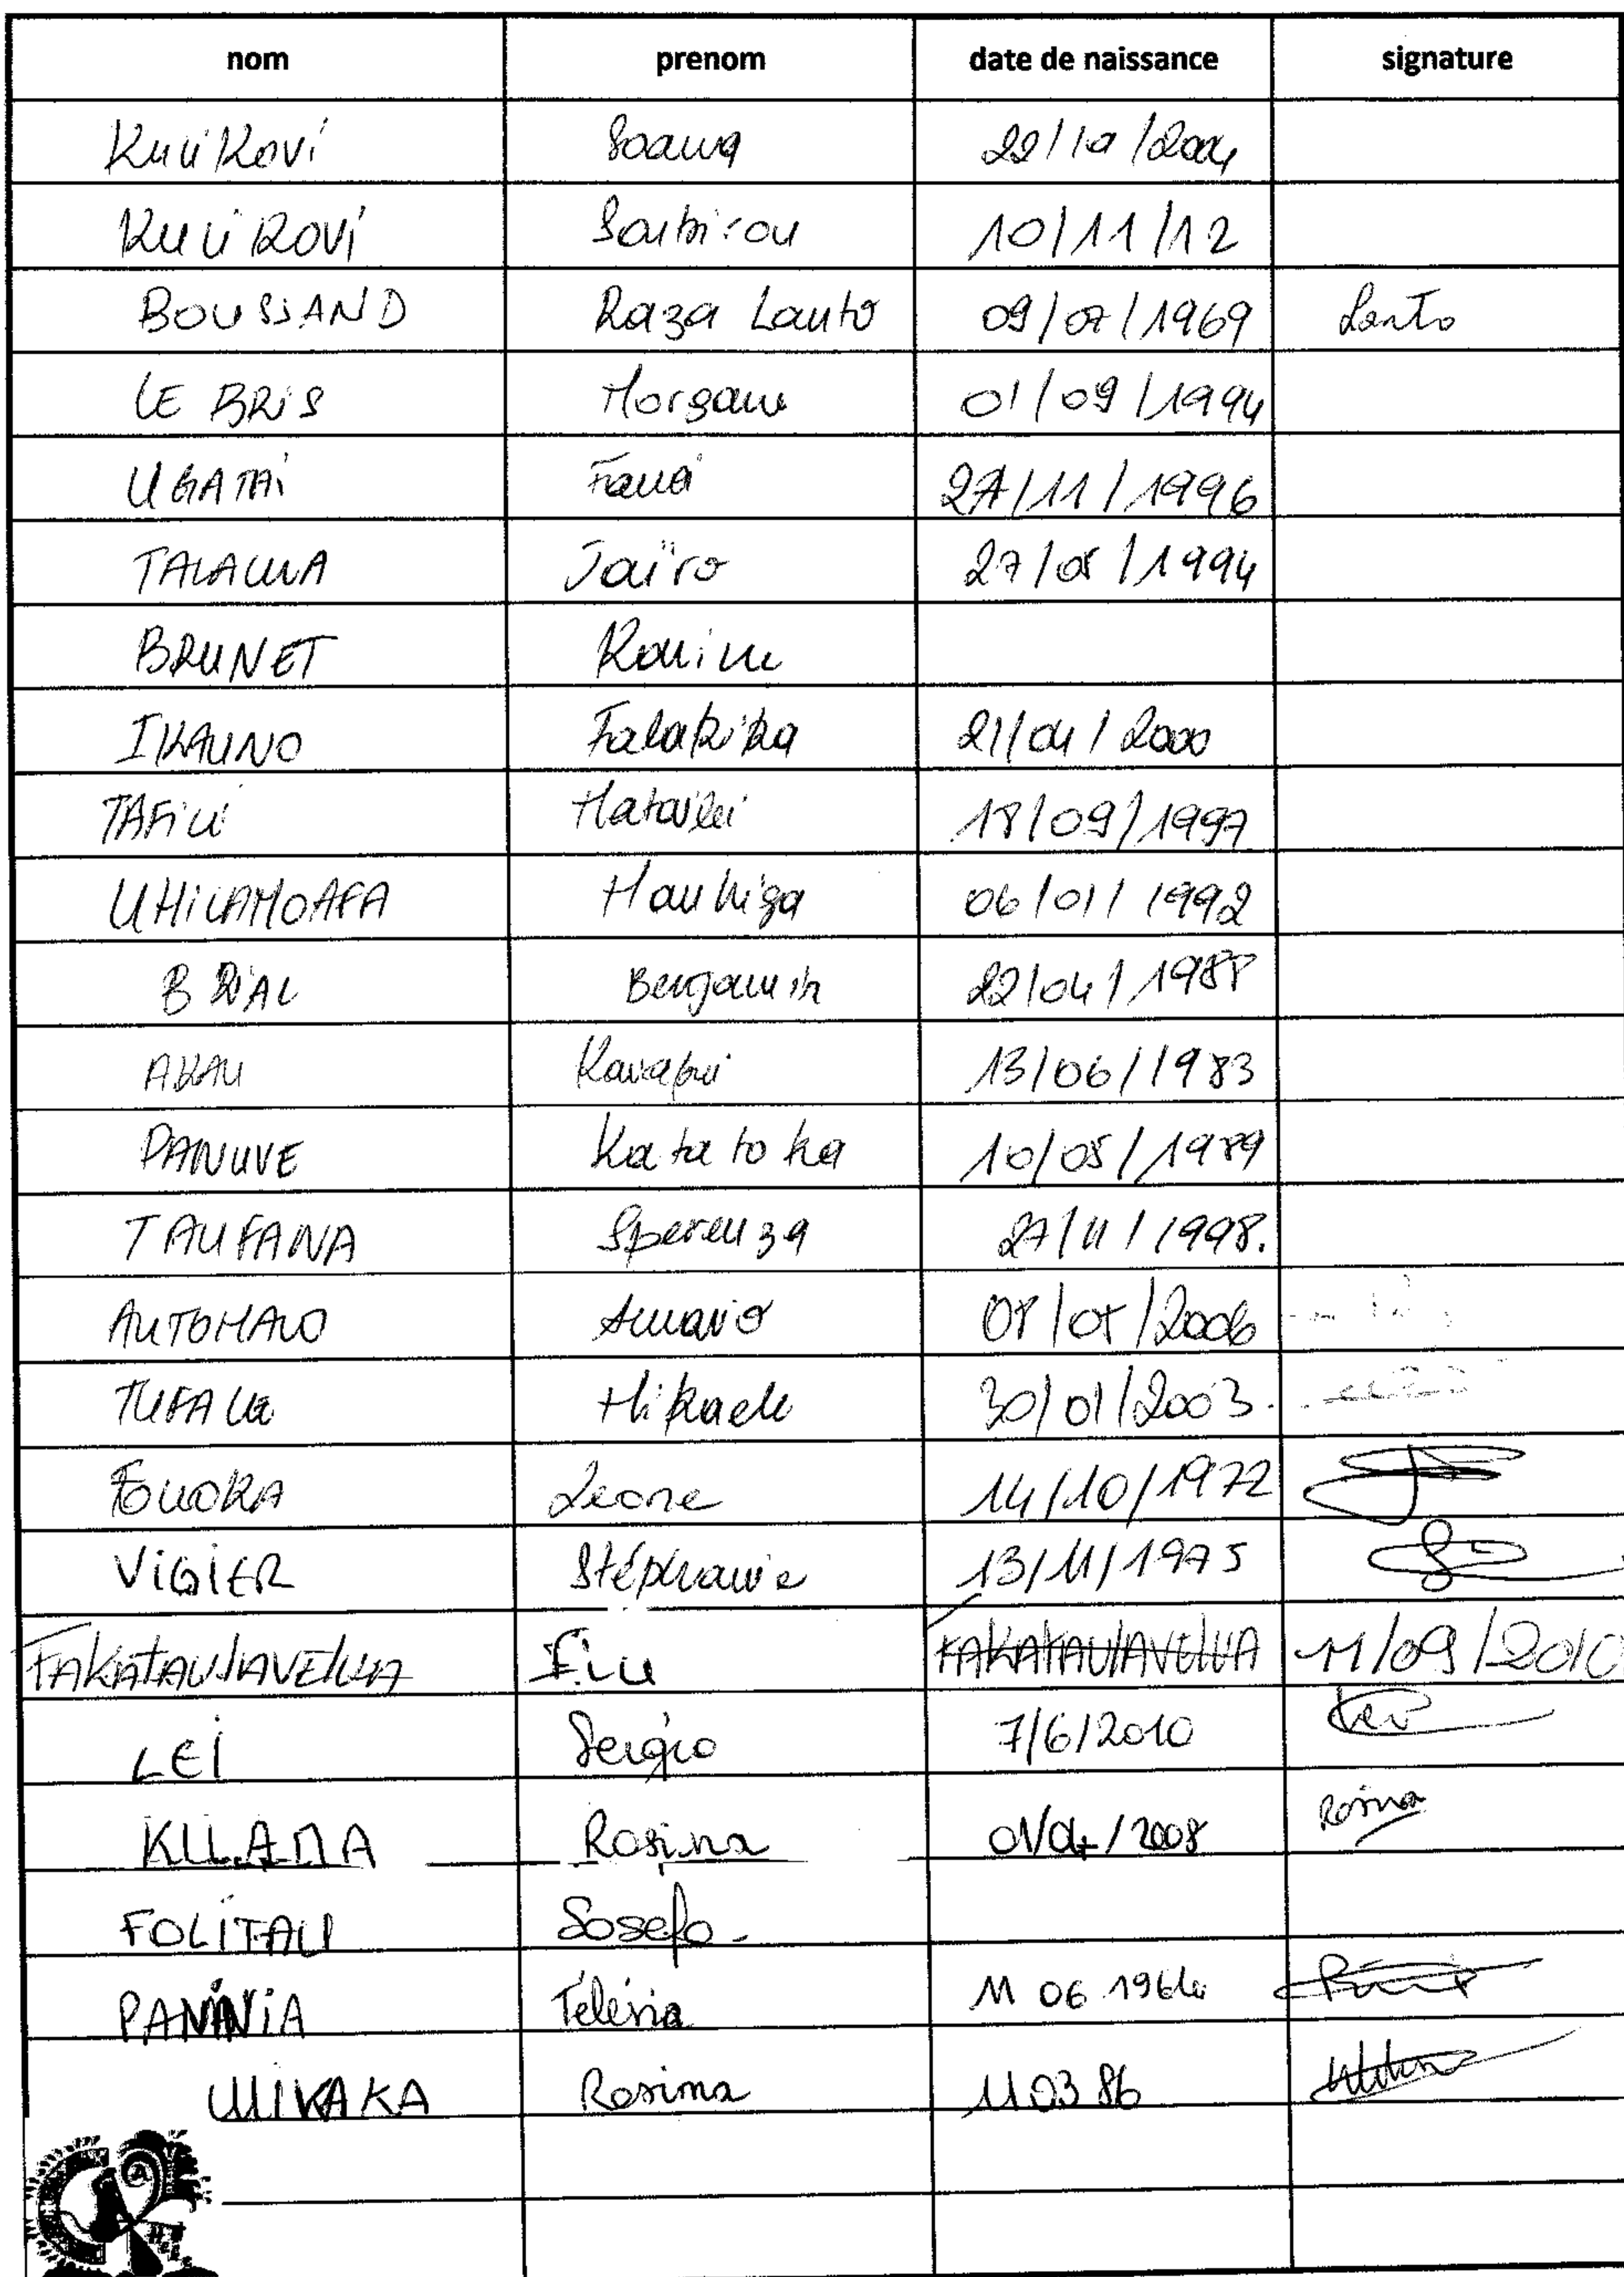 nom prenom date de naissance signature
Kulikovi Soana 22/10/2004
Kulikovi Soubirou 10/11/12
BOUSSAND Raza Lanto 09/07/1969 Lanto
LE BRIS Morgane 01/09/1994
UGATAI Fana 27/11/1996
TALALUA Jaïro 27/05/1994
BRUNET Karine
IKAUNO Falakika 21/04/2000
TAFILI Matailei 18/09/1997
UHILAMOAFA Mauhiga 06/01/1992
BRIAL Benjamin 22/04/1988
AKAU Kavapui 13/06/1983
PANUVE Katatoka 10/05/1989
TAUFANA Speranza 27/11/1998.
AUTOMALO Amario 2006
TUFALE Mikaele 30/01/2003.
FOLIOKA Leone 14/10/1972
ViGiER Stéphanie 13/11/1975
FAKATAULAVELUA FAKATAULAVELUA 11/09/2010
LEi Sergio 7/6/2010
KULANA Rosina 01/04/2008 Rosina
FOLITAU Sosefo
PANINIA Télésia 11 06 1964
ULUIKAKA Rosima 11 03 86